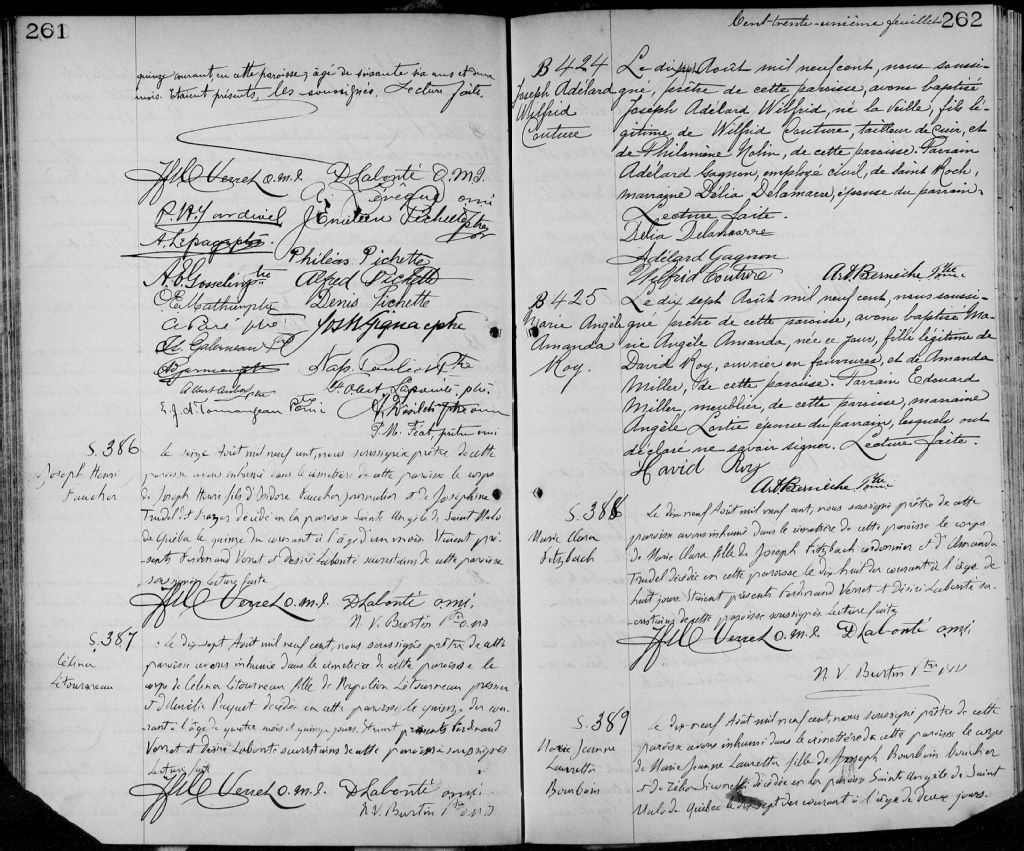 261
quinze courant, en cette paroisse, âgé de soixante six ans et deux
mois. Etaient présents, les soussignés. Lecture faite.
Verret o.m.i. D Labonté O.M.I.
Lévêque omi
J Emilien Pichette ptre
A. Lepage ptre
Philéas Pichette
A. O. Gosselin ptre Alfred Pichette
O. E. Mathieu ptre Denis Pichette
Jos H Gignac ptre
Nap. Pouliot Ptre
P. M. Féat, prêtre omi
S. 386
Joseph Henri
Faucher
Le seize Août mil neuf cent, nous soussigné prêtre de cette
paroisse avons inhumé dans le cimetière de cette paroisse le corps
de Joseph Henri fils d'Isidore Faucher journalier et de Joséphine
Trudel décédé en la paroisse Sainte Angèle de Saint Malo
de Québec le quinze du courant à l'âge d'un mois. Etaient pré-
sents Ferdinand Verret et Désiré Labonté sacristains de cette paroisse
soussignés Lecture faite
Verret o.m.i. D Labonté omi.
N. V. Burtin Ptre O.M.I
S. 387
Célina
Létourneau
Le dix-sept Août mil neuf cent, nous soussigné prêtre de cette
paroisse avons inhumé dans le cimetière de cette paroisse le
corps de Célina Létourneau fille de Napoléon Létourneau
et d'Aurélie Paquet décédée en cette paroisse le quinze du cou-
rant à l'âge de quatre mois et quinze jours. Etaient présents Ferdinand
Verret et Désiré Labonté sacristains de cette paroisse soussignés
Lecture faite
Verret o.m.i. D Labonté omi.
N. V. Burtin Ptre O.M.I
Cent-trente-unième feuillet 262
B 424
Joseph Adélard
Wilfrid
Couture
Le dix sept Août mil neuf cent, nous soussi-
gné, prêtre de cette paroisse, avons baptisé
Joseph Adélard Wilfrid, né la veille, fils lé-
gitime de Wilfrid Couture, tailleur de cuir, et
de Philomène Nolin, de cette paroisse. Parrain
Adélard Gagnon, employé civil, de Saint Roch,
marraine Délia Delamarre, épouse du parrain.
Lecture faite.
Délia Delamarre
Adélard Gagnon
Wilfrid Couture Art. Bernèche Ptre
B 425
Marie Angèle
Amanda
Roy.
Le dix sept Août mil neuf cent, nous soussi-
gné prêtre de cette paroisse, avons baptisé Ma-
rie Angèle Amanda, née ce jour, fille légitime de
David Roy, ouvrier en fourrures, et de Amanda
Miller, de cette paroisse. Parrain Edouard
Miller, meublier, de cette paroisse, marraine
Angèle Lortie épouse du parrain, lesquels ont
déclaré ne savoir signer. Lecture faite.
David Roy
Art Bernèche Ptre
S. 388
Marie Clara
Fitzbach
Le dix neuf Août mil neuf cent, nous soussigné prêtre de cette
paroisse avons inhumé dans le cimetière de cette paroisse le corps
de Marie Clara fille de Joseph Fitzbach cordonnier et d'Amanda
Trudel décédée en cette paroisse le dix huit du courant à l'âge de
huit jours. Etaient présents Ferdinand Verret et Désiré Labonté sa-
cristains de cette paroisse soussignés Lecture faite
Verret o.m.i. D Labonté omi.
N. V. Burtin Ptre O.M.I
S. 389
Marie Jeanne
Lauretta
Bourbois
Le dix neuf Août mil neuf cent, nous soussigné prêtre de cette
paroisse avons inhumé dans le cimetière de cette paroisse le corps
de Marie Jeanne Lauretta fille de Joseph Bourbois boucher
et de décédée en la paroisse Sainte Angèle de Saint
Malo de Québec le dix sept du courant à l'âge de deux jours.